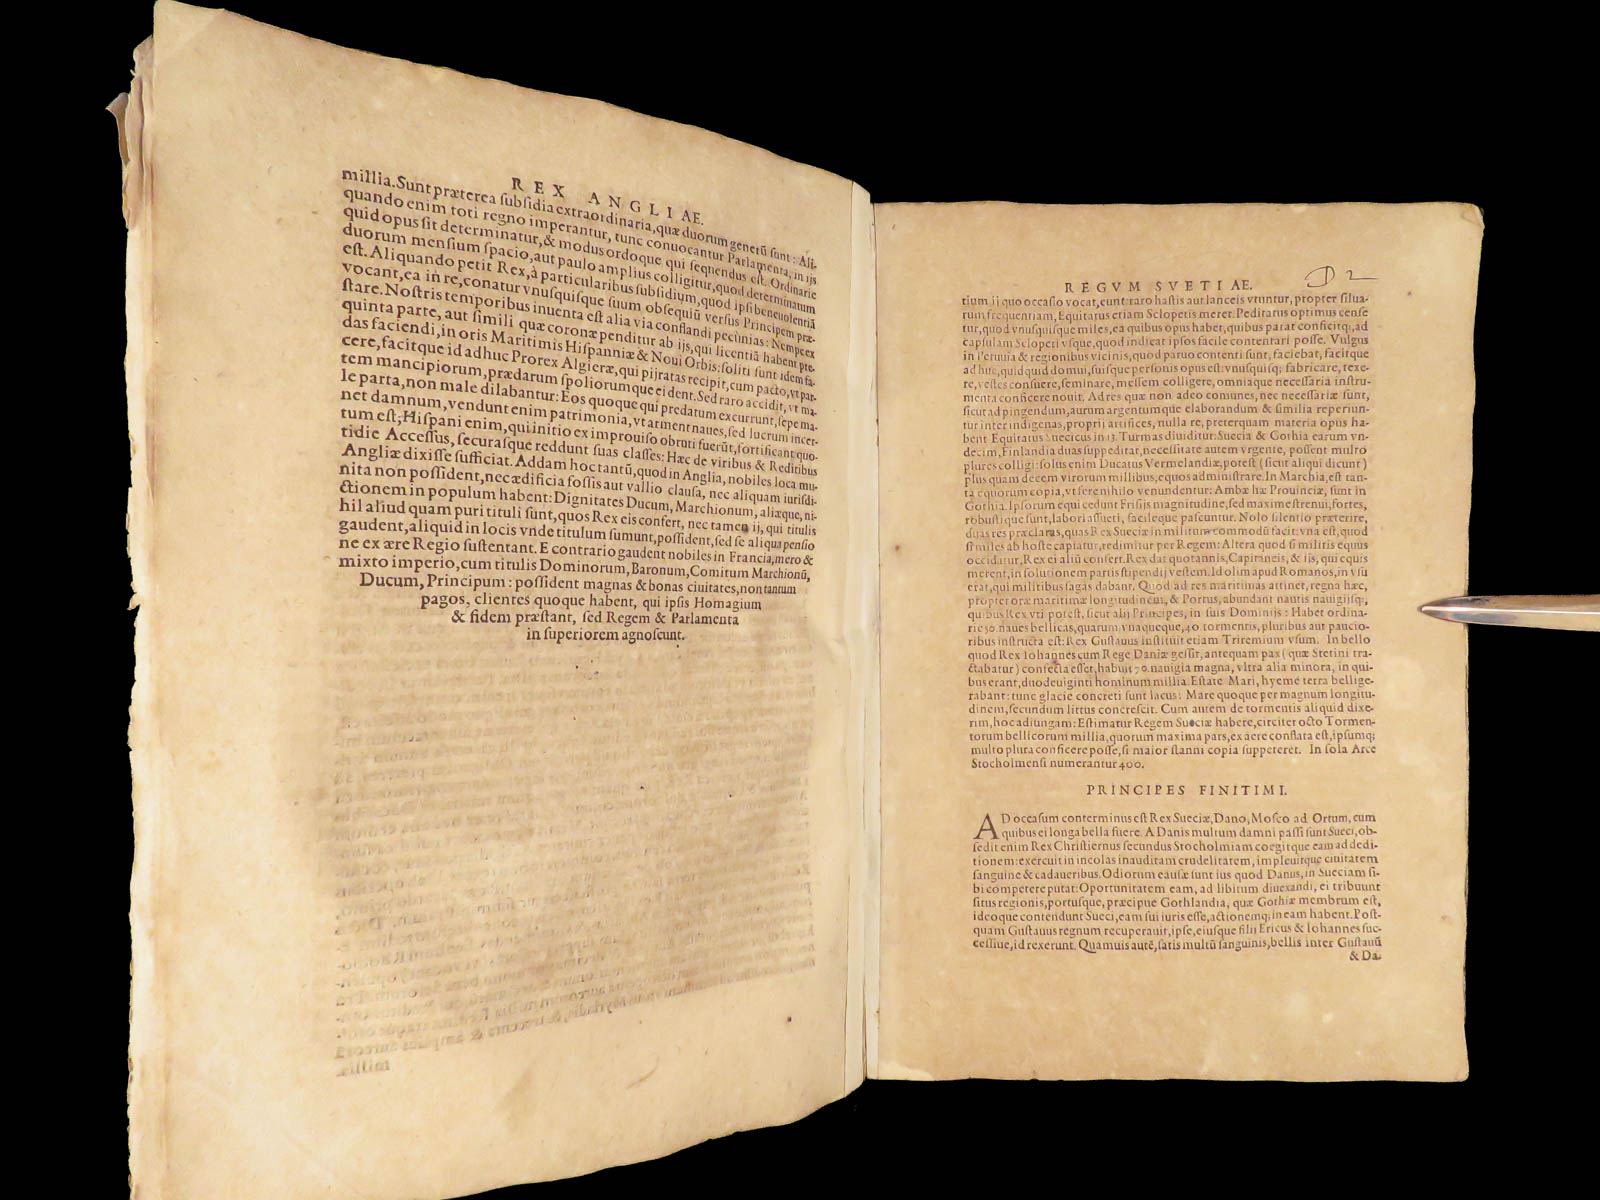 REX ANGLIAE.
millia. Sunt præterea subsidia extraordinaria, quæ duorum generũ sunt: Ali-
quando enim toti regno imperantur, tunc conuocantur Parlamenta, in ijs
quid opus sit determinatur, & modus ordoque qui sequendus est. Ordinarie
duorum mensium spacio, aut paulo amplius colligitur, quod determinatum
est. Aliquando petit Rex, à particularibus subsidium, quod ipsi beneuolentiã
vocant, ea in re, conatur vnusquisque suum obsequiũ versus Principem præ-
stare. Nostris temporibus inuenta est alia via conflandi pecunias: Nempe ex
quinta parte, aut simili quæ coronæ penditur ab ijs, qui licentiã habent præ-
das faciendi, in oris Maritimis Hispanniæ & Noui Orbis: soliti sunt idem fa-
cere, facitque id adhuc Prorex Algieræ, qui pijratas recipit, cum pacto, vt par-
tem mancipiorum, prædarum spoliorumque ei dent. Sed raro accidit, vt ma-
le parta, non male dilabantur: Eos quoque qui prædatum excurrunt, sepe ma-
net damnum, vendunt enim patrimonia, vt arment naues, sed lucrum incer-
tum est; Hispani enim, qui initio ex improuiso obruti fuerũt, fortificant quo-
tidie Accessus, securasque reddunt suas classes: Hæc de viribus & Reditibus
Angliæ dixisse sufficiat. Addam hoc tantũ, quod in Anglia, nobiles loca mu-
nita non possident, nec ædificia fossis aut vallio clausa, nec aliquam iurisdi-
ctionem in populum habent: Dignitates Ducum, Marchionum, aliæque, ni-
hil aliud quam puri tituli sunt, quos Rex eis confert, nec tamen ij, qui titulis
gaudent, aliquid in locis vnde titulum sumunt, possident, sed se aliqua pensio
ne ex ære Regio sustentant. E contrario gaudent nobiles in Francia, mero &
mixto imperio, cum titulis Dominorum, Baronum, Comitum Marchionũ,
Ducum, Principum: possident magnas & bonas ciuitates, non tantum
pagos, clientes quoque habent, qui ipsis Homagium
& fidem præstant, sed Regem & Parlamenta
in superiorem agnoscunt.
REGVM SVETIAE.
D 2
tium ij quo occasio vocat, eunt: raro hastis aut lanceis vtuntur, propter silua-
rum frequentiam, Equitatus etiam Sclopetis meret. Peditatus optimus cense
tur, quod vnusquisque miles, ea quibus opus habet, quibus parat conficitq;, ad
capsulam Sclopeti vsque, quod indicat ipsos facile contentari posse. Vulgus
in Petuuia & regionibus vicinis, quod paruo contenti sunt, faciebat, facitque
adhuc, quidquid domui, suisque personis opus est: vnusquisq; fabricare, texe-
re, vestes consuere, seminare, messem colligere, omniaque necessaria instru-
menta conficere nouit. Ad res quæ non adeo comunes, nec necessariæ sunt,
sicut ad pingendum, aurum argentumque elaborandum & similia reperiun-
tur inter indigenas, proprij artifices, nulla re, preterquam materia opus ha-
bent Equitatus Suecicus in 13. Turmas diuiditur: Suecia & Gothia earum vn-
decim, Finlandia duas suppeditat, necessitate autem vrgente, possent multo
plures colligi: solus enim Ducatus Vermelandiæ, potest (sicut aliqui dicunt)
plus quam decem virorum millibus, equos administrare. In Marchia, est tan-
ta equorum copia, vt fere nihilo venundentur: Ambæ hæ Prouinciæ, sunt in
Gothia. Ipsorum equi cedunt Frisijs magnitudine, sed maxime strenui, fortes,
robustique sunt, labori assueti, facileque pascuntur. Nolo silentio præterire,
duas res præclaras, quas Rex Sueciæ in militum commodũ facit: vna est, quod
si miles ab hoste capiatur, redimitur per Regem: Altera quod si militis equus
occidatur, Rex ei aliũ confert. Rex dat quotannis, Capitaneis, & iis, qui equis
merent, in solutionem partis stipendij vestem. Id olim apud Romanos, in vsu
erat, qui militibus sagas dabant. Quod ad res maritimas attinet, regna hæc,
propter oræ maritimæ longitudinem, & Portus, abundant nautis nauigijsq;,
quibus Rex vti potest, sicut alij Principes, in suis Dominijs: Habet ordina-
rie 50. naues bellicas, quarum vnaquæque, 40 tormentis, pluribus aut paucio-
ribus instructa est: Rex Gustauus instituit etiam Triremium vsum. In bello
quod Rex Iohannes cum Rege Daniæ gessit, antequam pax (quæ Stetini tra-
ctabatur) confecta esset, habuit 70. nauigia magna, vltra alia minora, in qui-
bus erant, duodeuiginti hominum millia. Estate Mari, hyeme terra bellige-
rabant: tunc glacie concreti sunt lacus: Mare quoque per magnum longitu-
dinem, secundum littus concrescit. Cum autem de tormentis aliquid dixe-
rim, hoc adiungam: Estimatur Regem Sueciæ habere, circiter octo Tormen-
torum bellicorum millia, quorum maxima pars, ex aere conflata est, ipsumq;
multo plura conficere posse, si maior stanni copia suppeteret. In sola Arce
Stocholmensi numerantur 400.
PRINCIPES FINITIMI.
AD occasum conterminus est Rex Sueciæ, Dano, Mosco ad Ortum, cum
quibus ei longa bella fuere. A Danis multum damni passi sunt Sueci, ob-
sedit enim Rex Christiernus secundus Stocholmiam coegitque eam ad dedi-
tionem: exercuit in incolas inauditam crudelitatem, impleuitque ciuitatem
sanguine & cadaueribus. Odiorum causæ sunt ius quod Danus, in Sueciam si-
bi competere putat: Oportunitatem eam, ad libitum diuexandi, ei tribuunt
situs regionis, portusque, præcipue Gothlandia, quæ Gothiæ membrum est,
ideoque contendunt Sueci, eam sui iuris esse, actionemq; in eam habent. Post-
quam Gustauus regnum recuperauit, ipse, eiusque filij Ericus & Iohannes suc-
cessiue, id rexerunt. Quamuis autẽ, satis multũ sanguinis, bellis inter Gustauũ
& Da-